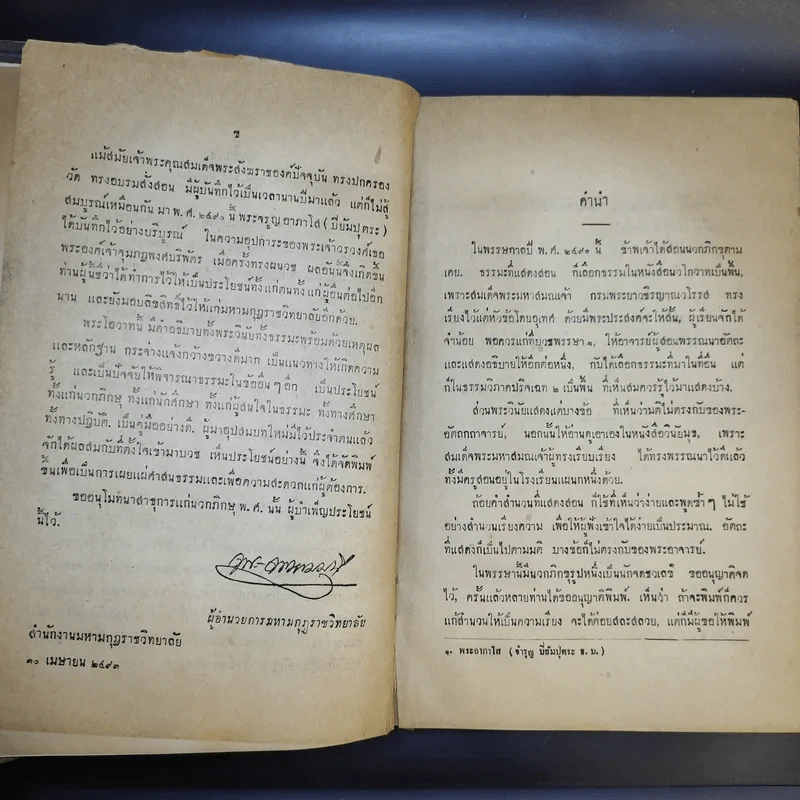 ข
แม้สมัยเจ้าพระคุณสมเด็จพระสังฆราชองค์ปัจจุบัน ทรงปกครอง
วัด ทรงอบรมสั่งสอน มีผู้บันทึกไว้เป็นเวลานานปีมาแล้ว แต่ก็ไม่สู้
สมบูรณ์เหมือนกัน มา พ.ศ. ๒๔๙๐ นี้ พระจรูญ อาภาโส (ปี่ยัมปุตระ)
ได้บันทึกไว้อย่างบริบูรณ์ ในความอุปการะของพระเจ้าวรวงศ์เธอ
พระองค์เจ้าจุมภฏพงศ์บริพัตร เมื่อครั้งทรงผนวช ผลอันนี้จึงเกิดขึ้น
ท่านผู้นี้ชื่อว่าได้ทำการไว้ให้เป็นประโยชน์ทั้งแก่ตนทั้งแก่ผู้อื่นต่อไปอีก
นาน และยังมอบลิขสิทธิ์ไว้ให้แก่มหามกุฏราชวิทยาลัยอีกด้วย.
พระโอวาทนี้ มีคำอธิบายทั้งพระวินัยทั้งธรรมะพร้อมด้วยเหตุผล
และหลักฐาน กระจ่างแจ้งกว้างขวางดีมาก เป็นแนวทางให้เกิดความ
รู้ และเป็นปัจจัยให้พิจารณาธรรมะในข้ออื่นๆ อีก เป็นประโยชน์
ทั้งแก่นวกภิกษุ ทั้งแก่นักศึกษา ทั้งแก่ผู้สนใจในธรรมะ ทั้งทางศึกษา
ทั้งทางปฏิบัติ. เป็นคู่มืออย่างดี. ผู้มาอุปสมบทใหม่มีไว้ประจำตนแล้ว
จักได้ผลสมกับที่ตั้งใจเข้ามาบวช เห็นประโยชน์อย่างนี้ จึงได้จัดพิมพ์
ขึ้นเพื่อเป็นการเผยแผ่คำสนธรรมและเพื่อความสะดวกแก่ผู้ต้องการ.
ขออนุโมทนาสาธุการแก่นวกภิกษุ พ.ศ. นั้น ผู้บำเพ็ญประโยชน์
นี้ไว้.
ผู้อำนวยการมหามกุฏราชวิทยาลัย
สำนักงานมหามกุฏราชวิทยาลัย
๓๐ เมษายน ๒๔๙๓
คำนำ
ในพรรษากาลปี พ.ศ. ๒๔๙๐ นี้ ข้าพเจ้าได้สอนนวกภิกษุตาม
เคย. ธรรมะที่แสดงสอน ก็เลือกธรรมในหนังสือนวโกวาทเป็นพื้น,
เพราะสมเด็จพระมหาสมณเจ้า กรมพระยาวชิรญาณวโรรส ทรง
เรียงไว้แต่หัวข้อโดยอุเทศ ด้วยมีพระประสงค์จะให้สั้น, ผู้เรียนจักได้
จำน้อย พอควรแก่ที่บวชพรรษา ๑, ให้อาจารย์ผู้สอนพรรณนาอัตถะ
และแสดงอธิบายให้อีกต่อหนึ่ง, กับได้เลือกธรรมะที่มาในที่อื่น แต่
ก็ในธรรมวิภาคปริจเฉท ๒ เป็นพื้น ที่เห็นสมควรรู้ไว้มาแสดงบ้าง.
ส่วนพระวินัยแสดงแต่บางข้อ ที่เห็นว่ามติไม่ตรงกับของพระ-
อัตถกถาจารย์, นอกนั้นให้อ่านดูเอาเองในหนังสือวินัยมุข, เพราะ
สมเด็จพระมหาสมณเจ้าผู้ทรงเรียบเรียง ได้ทรงพรรณนาไว้ดีแล้ว
ทั้งมีครูสอนอยู่ในโรงเรียนแผนกหนึ่งด้วย.
ถ้อยคำสำนวนที่แสดงสอน ก็ใช้ที่เห็นว่าง่ายและพูดซ้ำๆ ไม่ใช้
อย่างสำนวนเรียงความ เพื่อให้ผู้ฟังเข้าใจได้ง่ายเป็นประมาณ. อัตถะ
ที่แสดงก็เป็นไปตามมติ บางข้อก็ไม่ตรงกับของพระอาจารย์.
ในพรรษานั้นมีนวกภิกขุรูปหนึ่งเป็นนักจดชวเลข ขออนุญาตจด
ไว้, ครั้นแล้วหลายท่านได้ขออนุญาตพิมพ์. เห็นว่า ถ้าจะพิมพ์ก็ควร
แก้สำนวนให้เป็นความเรียง จะได้ค่อยสละสลวย, แต่ก็มีผู้ขอให้พิมพ์
๑. พระอาภาโส (จำรูญ ปี่ยัมปุตระ ธ.บ.)